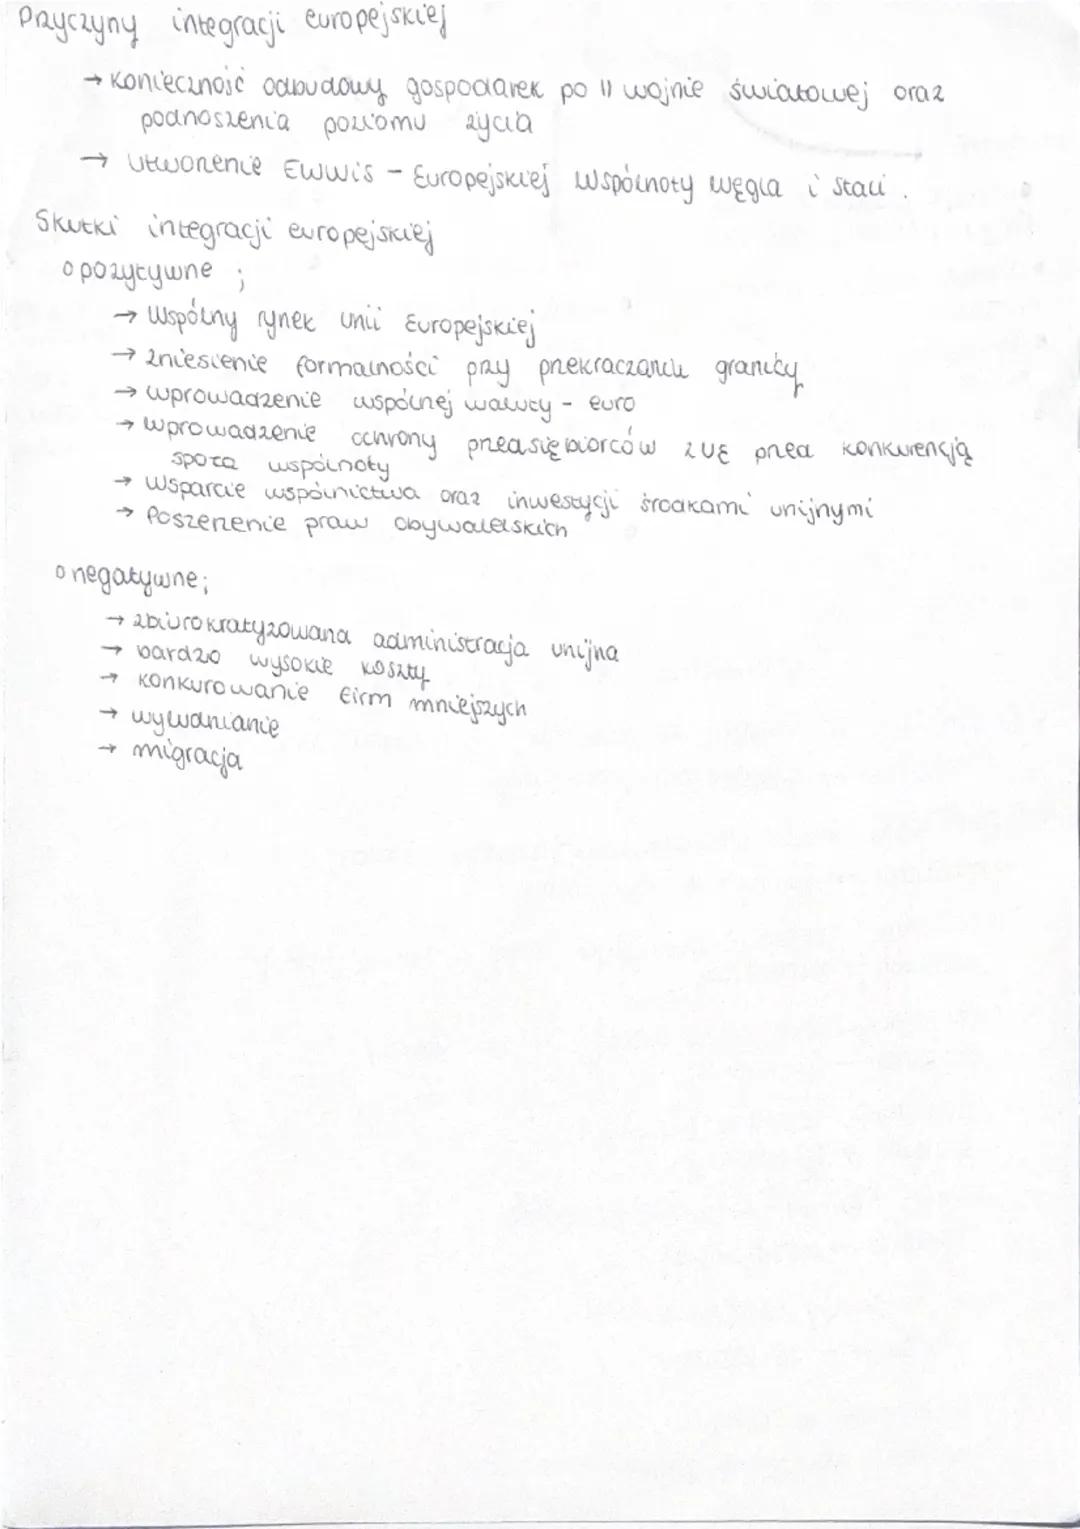 Przyczyny integracji europejskiej
→ Konieczność odbudowy gospodarek po II wojnie światowej oraz
podnoszenia poziomu życia
→ Utworzenie EWWiS - Europejskiej Wspólnoty Węgla i Stali.
Skutki integracji europejskiej
o pozytywne ;
→ Wspólny rynek unii Europejskiej
→ zniesienie formalności przy przekraczaniu granicy
→ wprowadzenie wspólnej waluty - euro
→ wprowadzenie ochrony przedsiębiorców z UE przed konkurencją
spoza wspólnoty
→ Wsparcie wspólnictwa oraz inwestycji środkami unijnymi
→ Poszerzenie praw obywatelskich
o negatywne ;
→ zbiurokratyzowana administracja unijna
→ bardzo wysokie koszty
→ konkurowanie firm mniejszych
→ wyludnianie
→ migracja